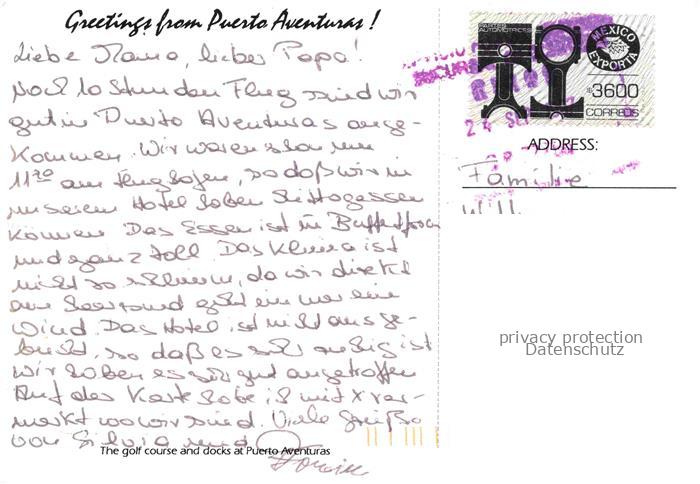 Greetings from Puerto Aventuras !
Liebe Mama, lieber Papa!
Nach 10 Stunden Flug sind wir
gut in Puerto Aventuras ange-
kommen. Wir waren schon um
11³⁰ am Flughafen, so daß wir in
unserem Hotel haben Mittagessen
können. Das Essen ist in Buffetform
und ganz toll. Das Klima ist
nicht so schlimm, da wir direkt
am Seerand geht immer ein
Wind. Das Hotel ist nicht ausge-
bucht, so daß es sehr ruhig ist
Wir haben es sehr gut angetroffen
Auf der Karte habe ich mit X ver-
merkt wo wir sind. Viele Grüße
von Silvia und
The golf course and docks at Puerto Aventuras
PARTES AUTOMOTRICES
MEXICO EXPORTA
$3600
CORREOS
ADDRESS:
Familie
privacy protection
Datenschutz